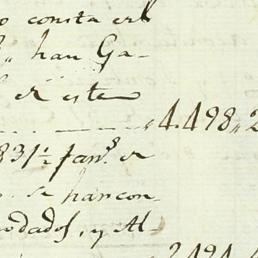 o consta en l
" han Ga-
el este
4.498,,2
831½ fan.s de
se han con-
odados, y Al-
2494